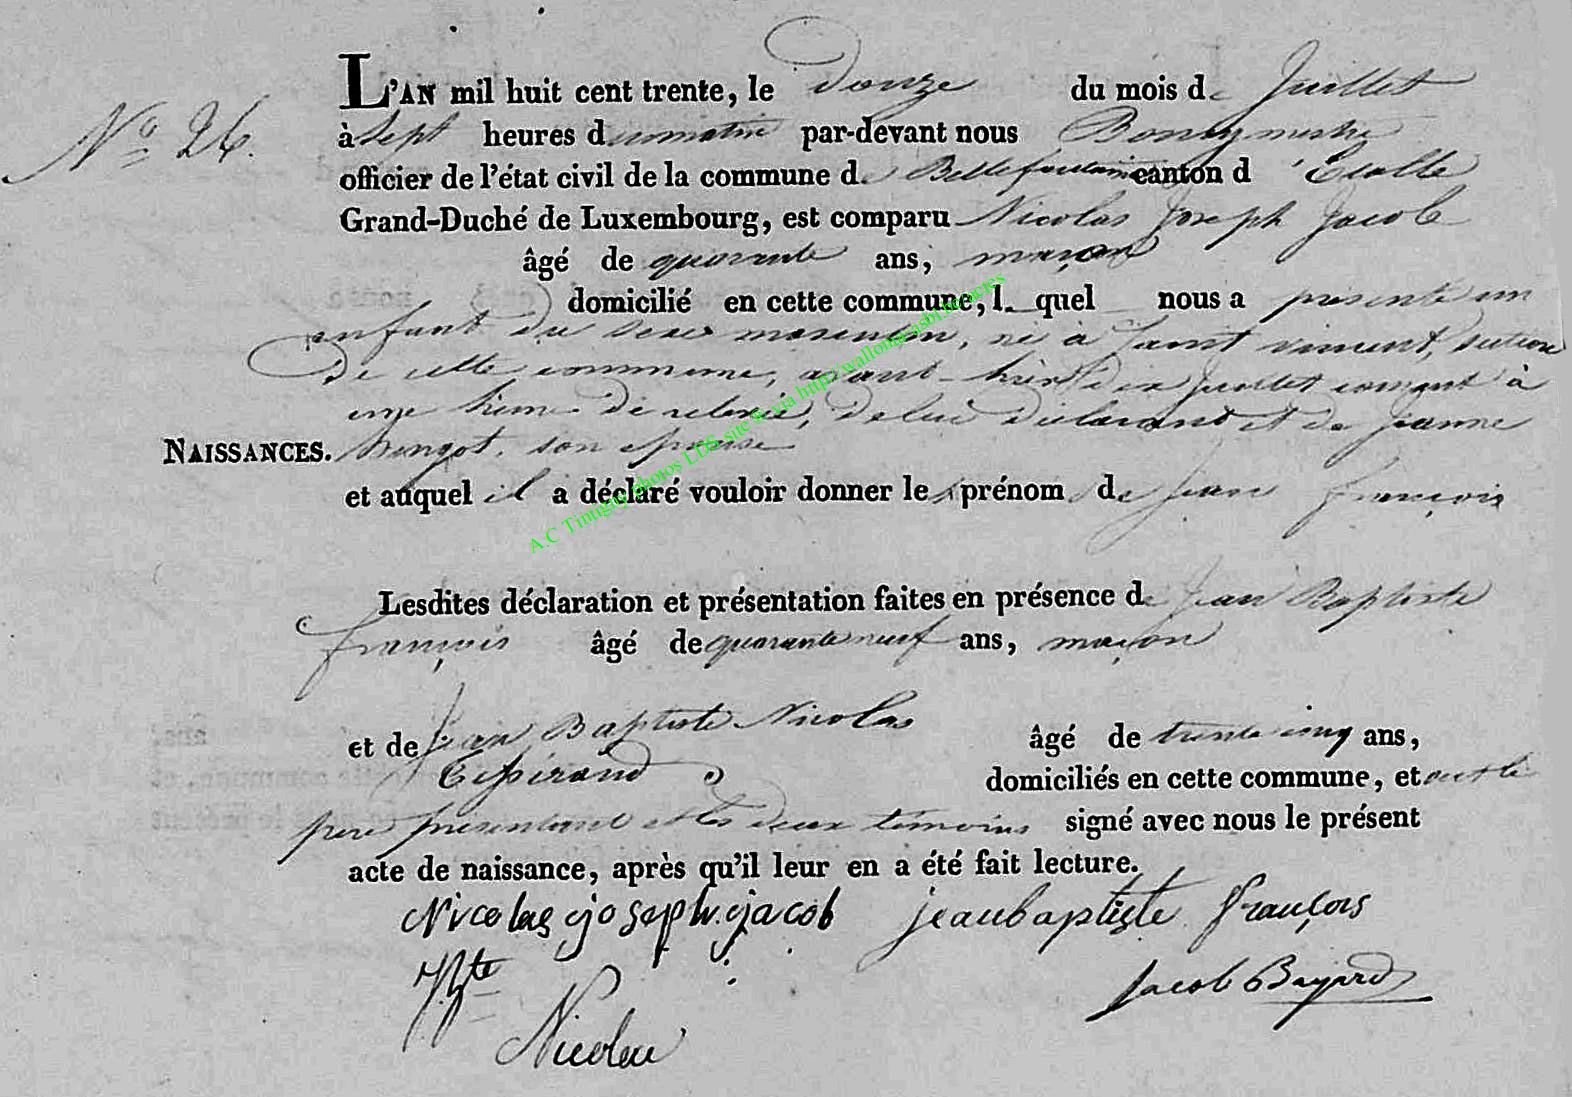 L'AN mil huit cent trente, le douze du mois de Juillet
N.º 26. à sept heures du matin par-devant nous Bourgmestre
officier de l'état civil de la commune de Bellefontaine canton d'Etalle
Grand-Duché de Luxembourg, est comparu Nicolas Joseph Jacob
âgé de quarante ans, maçon
domicilié en cette commune, l quel nous a presenté un
enfant du sexe masculin, né à Saint vincent, section
de cette commune, avant-hier dix Juillet courant à
une heure de relevée, de lui déclarant et de jeanne
NAISSANCES. son epouse
et auquel il a déclaré vouloir donner les prénoms de jean françois
Lesdites déclaration et présentation faites en présence de jean Baptiste
françois âgé de quarante neuf ans, maçon
et de Jean Baptiste Nicolas âgé de trente cinq ans,
Tisserand domiciliés en cette commune, et ont le
pere présentant et les deux témoins signé avec nous le présent
acte de naissance, après qu'il leur en a été fait lecture.
Nicolas joseph jacob jeanbaptiste françois
J Bte Jacob Bayard
Nicolas
A.C Tintigny photos LDS site & via http://wallonia-asbl.be/actes